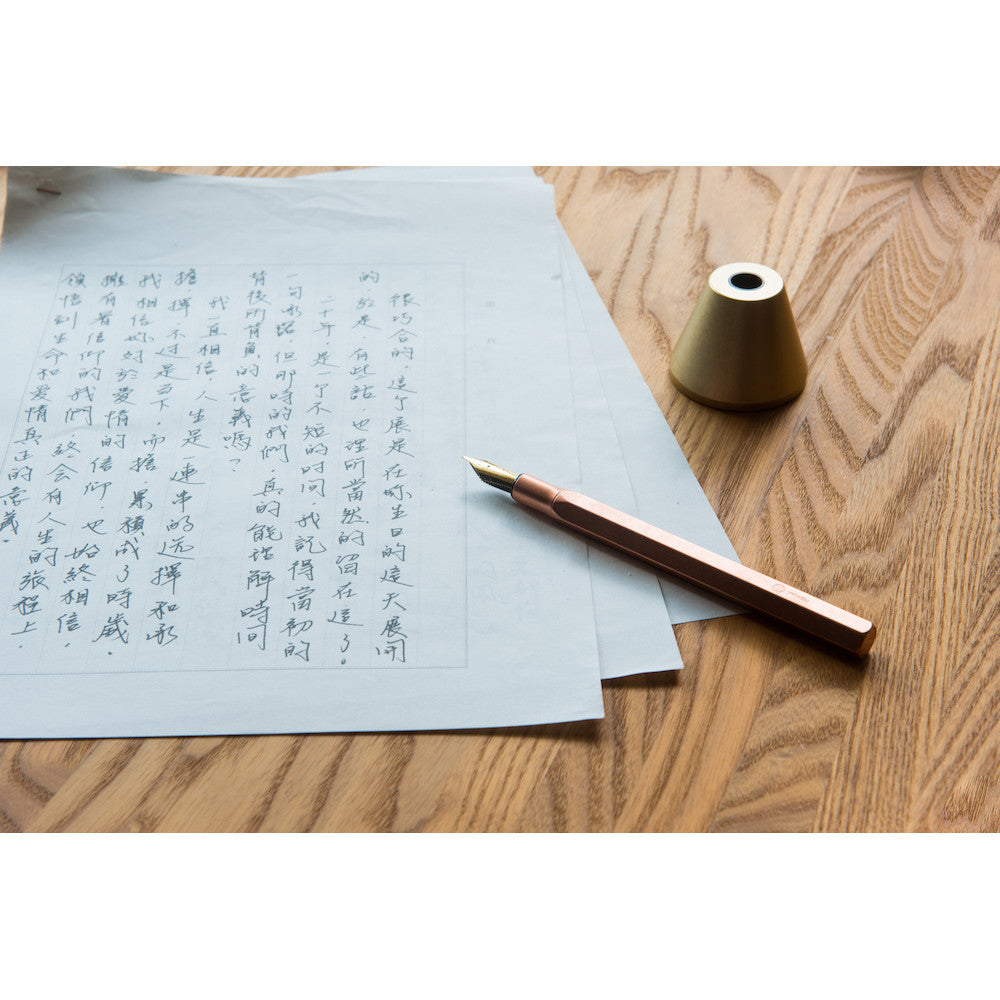 很巧合的，這个展是在妳生日的這天展開
的。於是，有些話，也理所當然的留在這了。
二十年，是一个不短的时间，我記得當初的
一句承諾，但那時的我們，真的能理解時間
背後所背負的意義嗎？
我一直相信，人生是一連串的选擇和承
擔，擇，不过是当下，而擔，累積成了時歲，
我相信妳对於愛情的信仰，也始終相信，
擁有著信仰的我們，終会有人生的旅程上，
領悟到生命和爱情真正的意義。